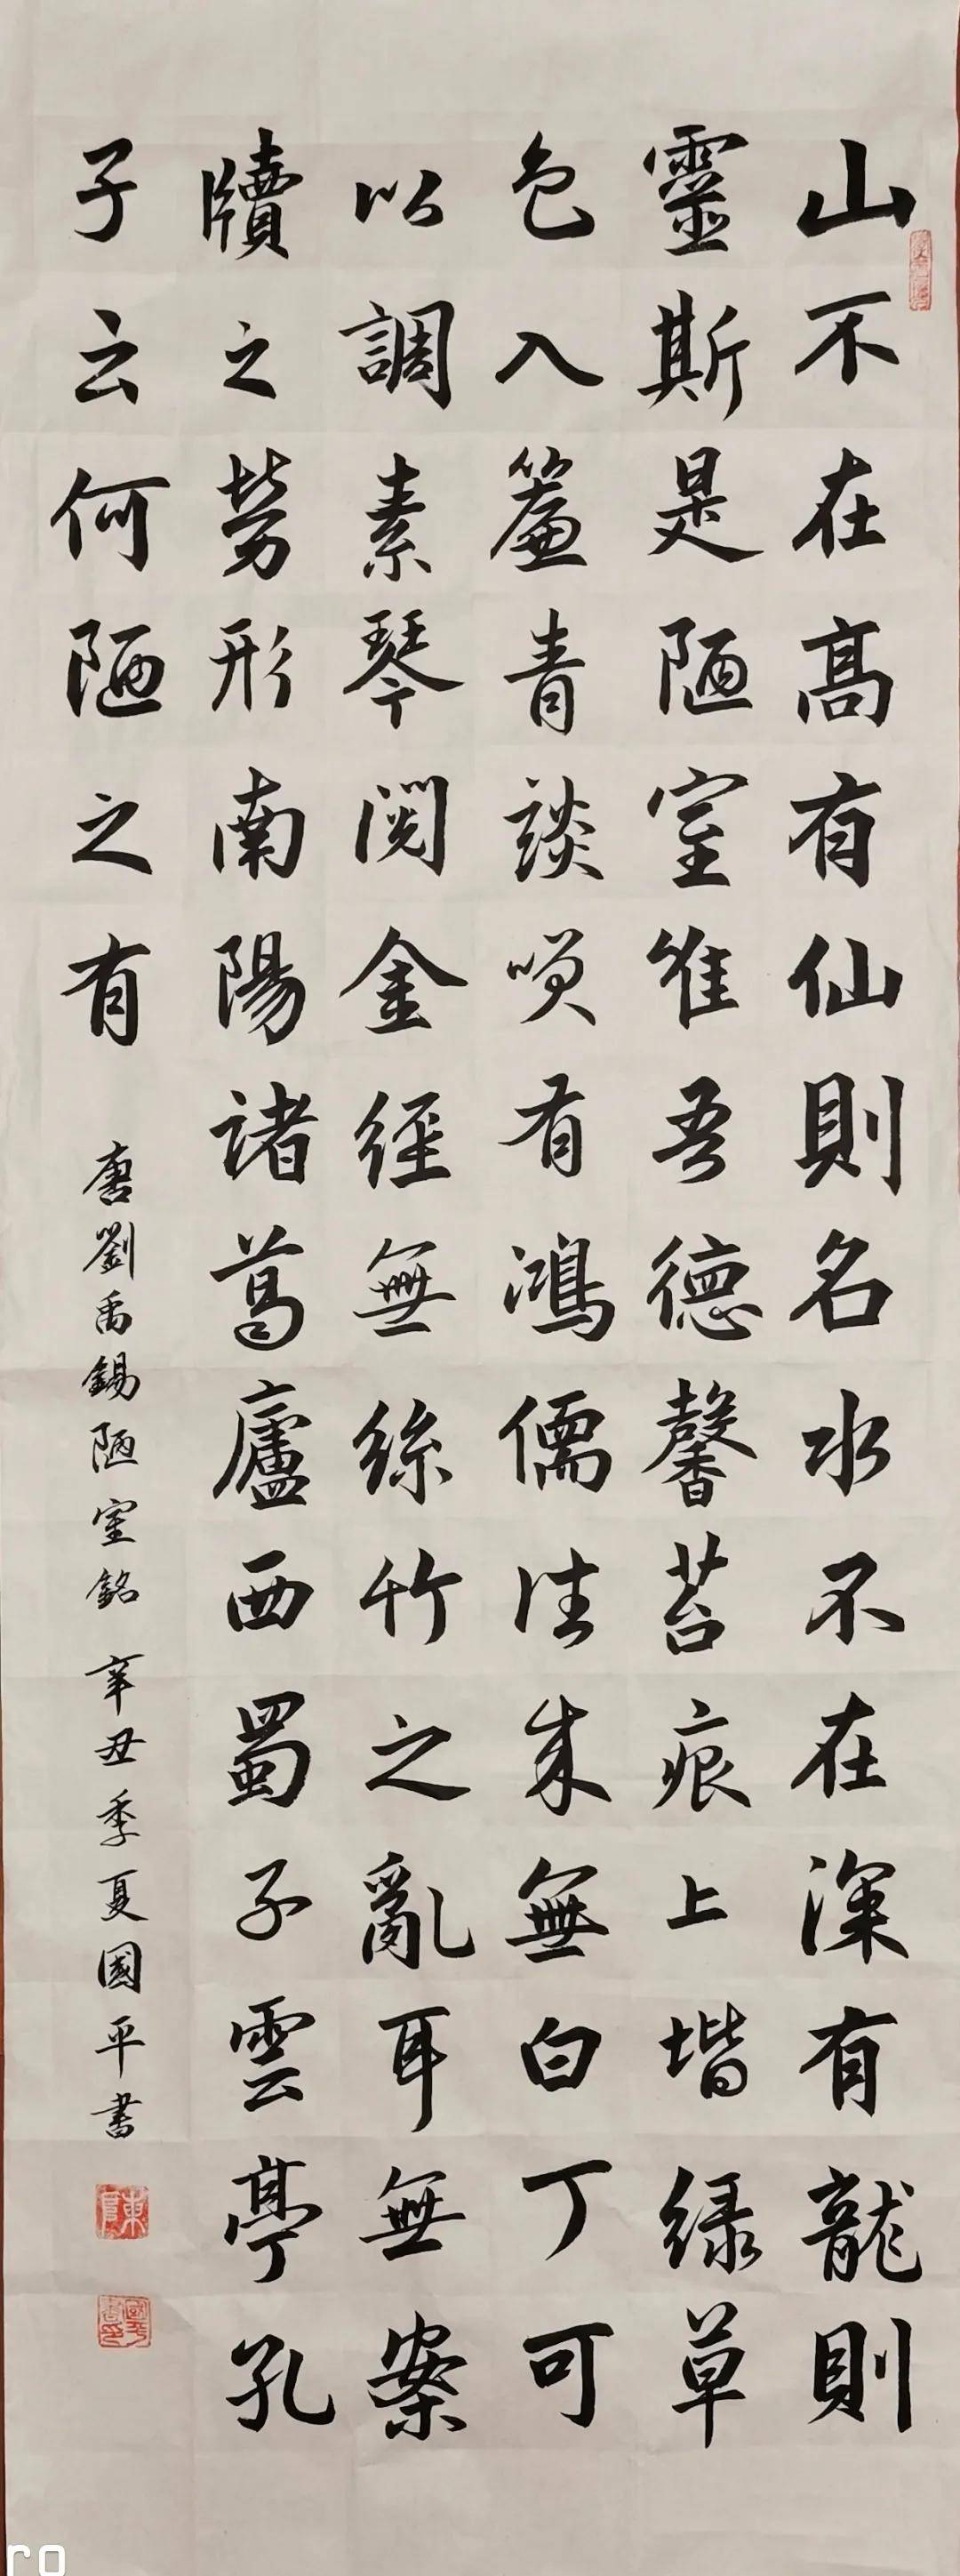 山不在高有仙則名水不在深有龍則
靈斯是陋室唯吾德馨苔痕上堦绿草
色入簾青談笑有鴻儒往来無白丁可
以調素琴閱金經無絲竹之亂耳無案
牘之勞形南陽諸葛廬西蜀子雲亭孔
子云何陋之有
唐劉禹錫陋室銘 辛丑季夏國平書
ro